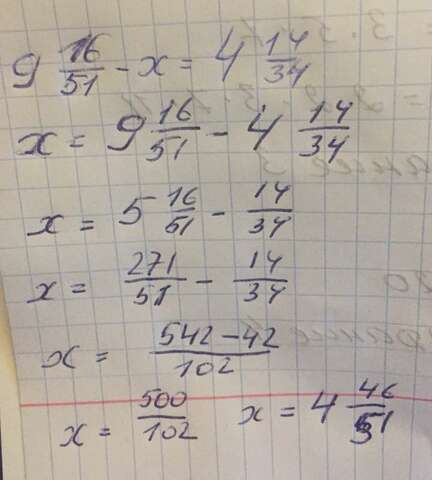 9 16/51 - x = 4 14/34
x = 9 16/51 - 4 14/34
x = 5 16/51 - 14/34
x = 271/51 - 14/34
x = 542-42/102
x = 500/102 x = 4 46/51